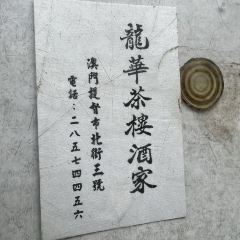 龍華茶樓酒家
澳門提督市北街三號
電話：二八五七四四五六